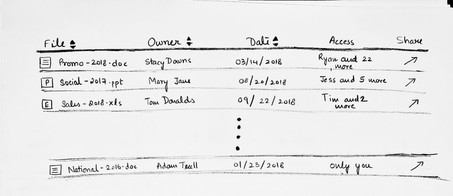 File Owner Date Access Share
Promo-2018.doc Stacy Downs 03/14/2018 Ryan and 22 more
P Social-2017.ppt Mary Jane 08/20/2018 Jess and 5 more
E Sales-2018.xls Tom Donalds 09/22/2018 Tim and 2 more
National-2016.doc Adam 01/23/2018 only you